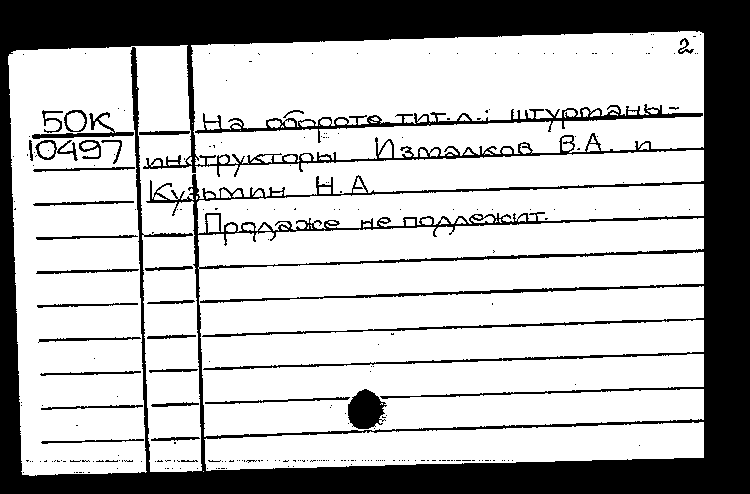 2
БОК На обороте тит.л.: штурманы-
10497 инструкторы Измалков В.А. и
Кузьмин Н.А.
Продаже не подлежит.